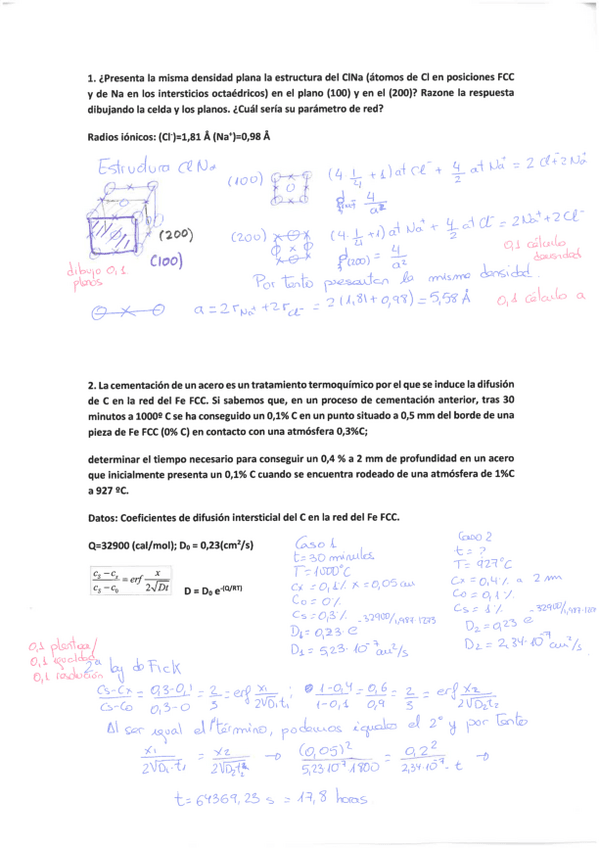 1. ¿Presenta la misma densidad plana la estructura del ClNa (átomos de Cl en posiciones FCC
y de Na en los intersticios octaédricos) en el plano (100) y en el (200)? Razone la respuesta
dibujando la celda y los planos. ¿Cuál sería su parámetro de red?
Radios iónicos: (Cl⁻)=1,81 Å (Na⁺)=0,98 Å
Estrudura ClNa
(100) (4 1/4 + 1) at Cl⁻ + 4/2 at Na⁺ = 2 Cl⁻ + 2 Na⁺
4/a²
(200) (4·1/4 + 1) at Na⁺ + 4/2 at Cl⁻ = 2Na⁺ + 2Cl⁻
(200)
(100)
(200) = 4/a²
0,1 cálculo
densidad
dibujo 0,1
planos
Por tanto presentan la misma densidad.
a = 2r Na⁺ + 2r Cl⁻ = 2(1,81 + 0,98) = 5,58 Å
0,1 cálculo a
2. La cementación de un acero es un tratamiento termoquímico por el que se induce la difusión
de C en la red del Fe FCC. Si sabemos que, en un proceso de cementación anterior, tras 30
minutos a 1000º C se ha conseguido un 0,1% C en un punto situado a 0,5 mm del borde de una
pieza de Fe FCC (0% C) en contacto con una atmósfera 0,3%C;
determinar el tiempo necesario para conseguir un 0,4 % a 2 mm de profundidad en un acero
que inicialmente presenta un 0,1% C cuando se encuentra rodeado de una atmósfera de 1%C
a 927 ºC.
Datos: Coeficientes de difusión intersticial del C en la red del Fe FCC.
Q=32900 (cal/mol); D₀ = 0,23(cm²/s)
(cs − cx)/(cs − c0) = erf x/(2√Dt)
D = D₀ e^-(Q/RT)
Caso 1
t = 30 minutos
T = 1000°C
Cx = 0,1% x = 0,05 cm
Co = 0%
Cs = 0,3%
D1 = 0,23·e^-32900/1,987·1273
D1 = 5,23·10⁻⁷ cm²/s
Caso 2
t = ?
T = 927°C
Cx = 0,4% a 2 mm
Co = 0,1%
Cs = 1%
D2 = 0,23 e^-32900/1,987·1200
D2 = 2,34·10⁻⁷ cm²/s
0,1 plantear/
0,1 igualdad
0,1 resolución
2ª ley de Fick
(Cs−Cx)/(Cs−Co) = (0,3−0,1)/(0,3−0) = 2/3 = erf x1/(2√D1t1); (1−0,4)/(1−0,1) = 0,6/0,9 = 2/3 = erf x2/(2√D2t2)
Al ser igual el 1º término, podemos igualar el 2º y por tanto
x1/(2√D1·t1) = x2/(2√D2·t2) → (0,05)²/(5,23·10⁻⁷·1800) = 0,2²/(2,34·10⁻⁷·t) →
t = 64369,23 s = 17,8 horas